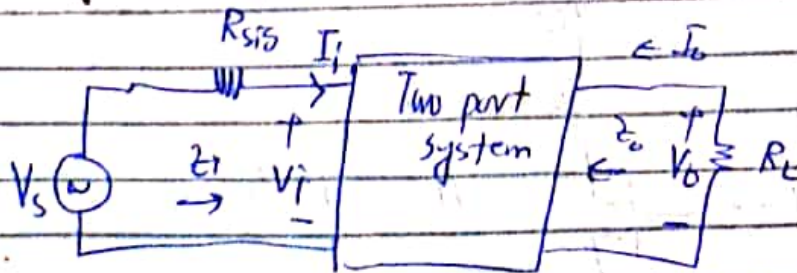 Rsig Ii ← Io
Two port
system
Vs Zi → + Vi - Zo ← + Vo - RL